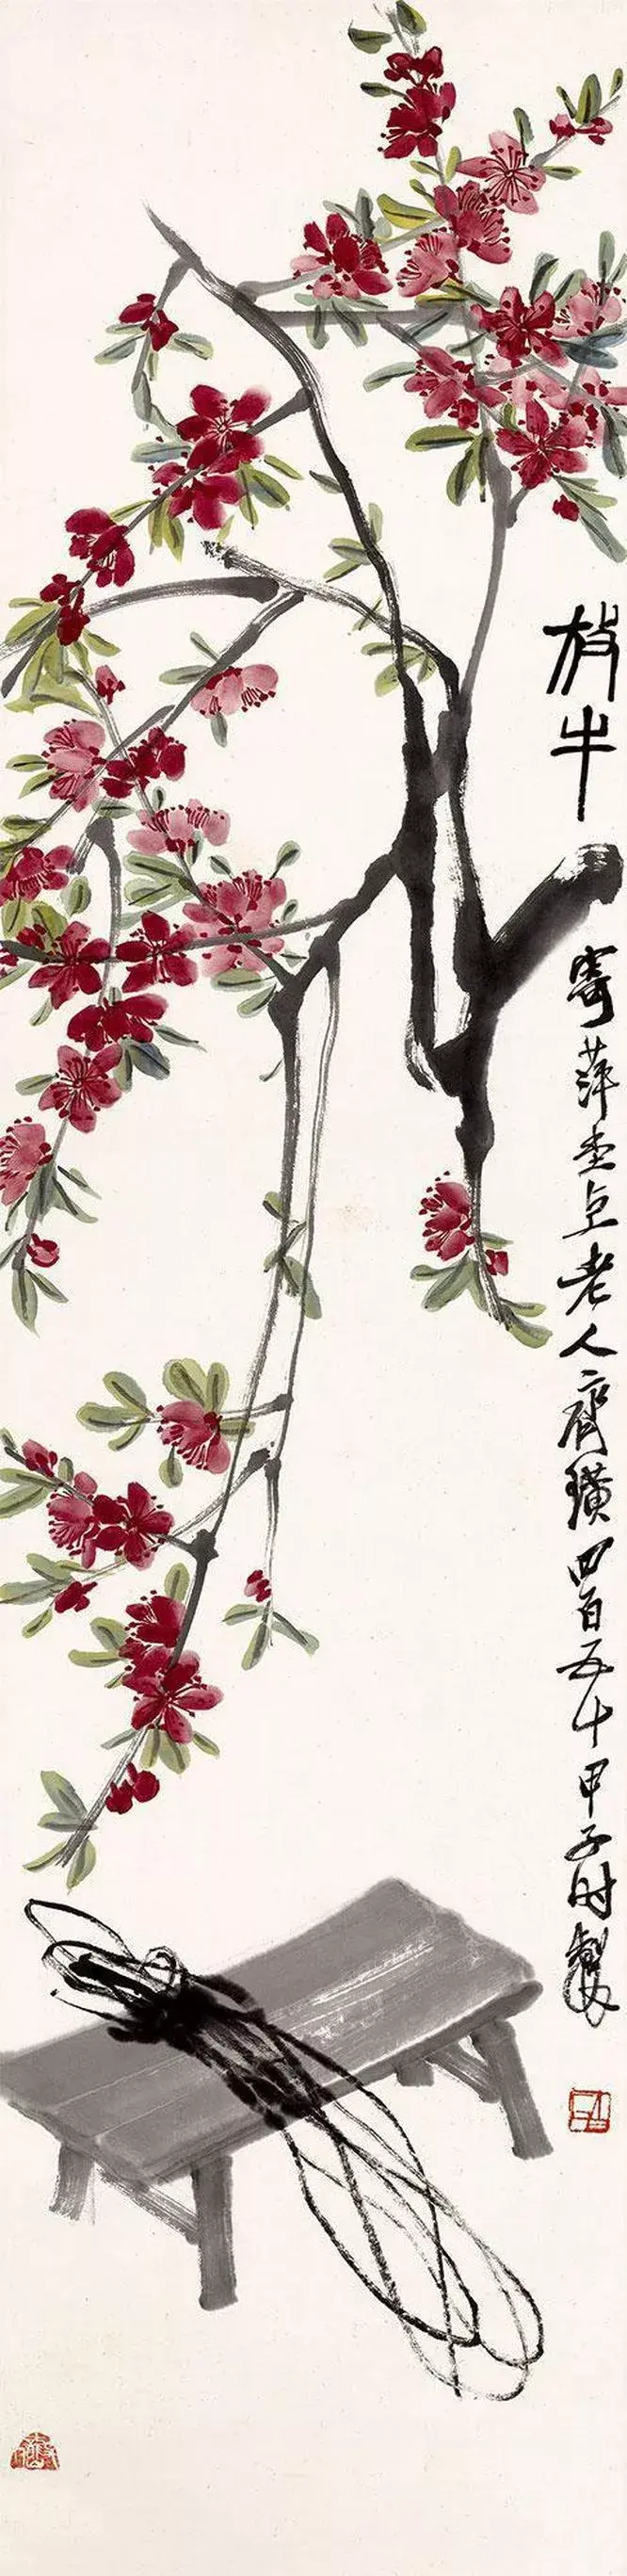 放牛
寄萍堂上老人齊璜四百五十甲子時製